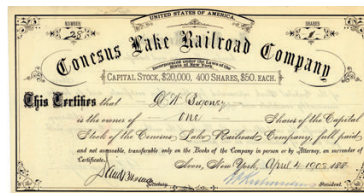 UNITED STATES OF AMERICA.
NUMBER
28
SHARES
1
Conesus Lake Railroad Company
INCORPORATED UNDER THE LAWS OF THE
State of New York.
CAPITAL STOCK, $20,000, 400 SHARES, $50. EACH.
This Certifies that
is the owner of One Shares of the Capital
Stock of the Conesus Lake Railroad Company, full paid,
and not assessable, transferable only on the Books of the Company in person or by Attorney, on surrender of this
Certificate.
Avon, New York, April 4, 1905 188
Secretary